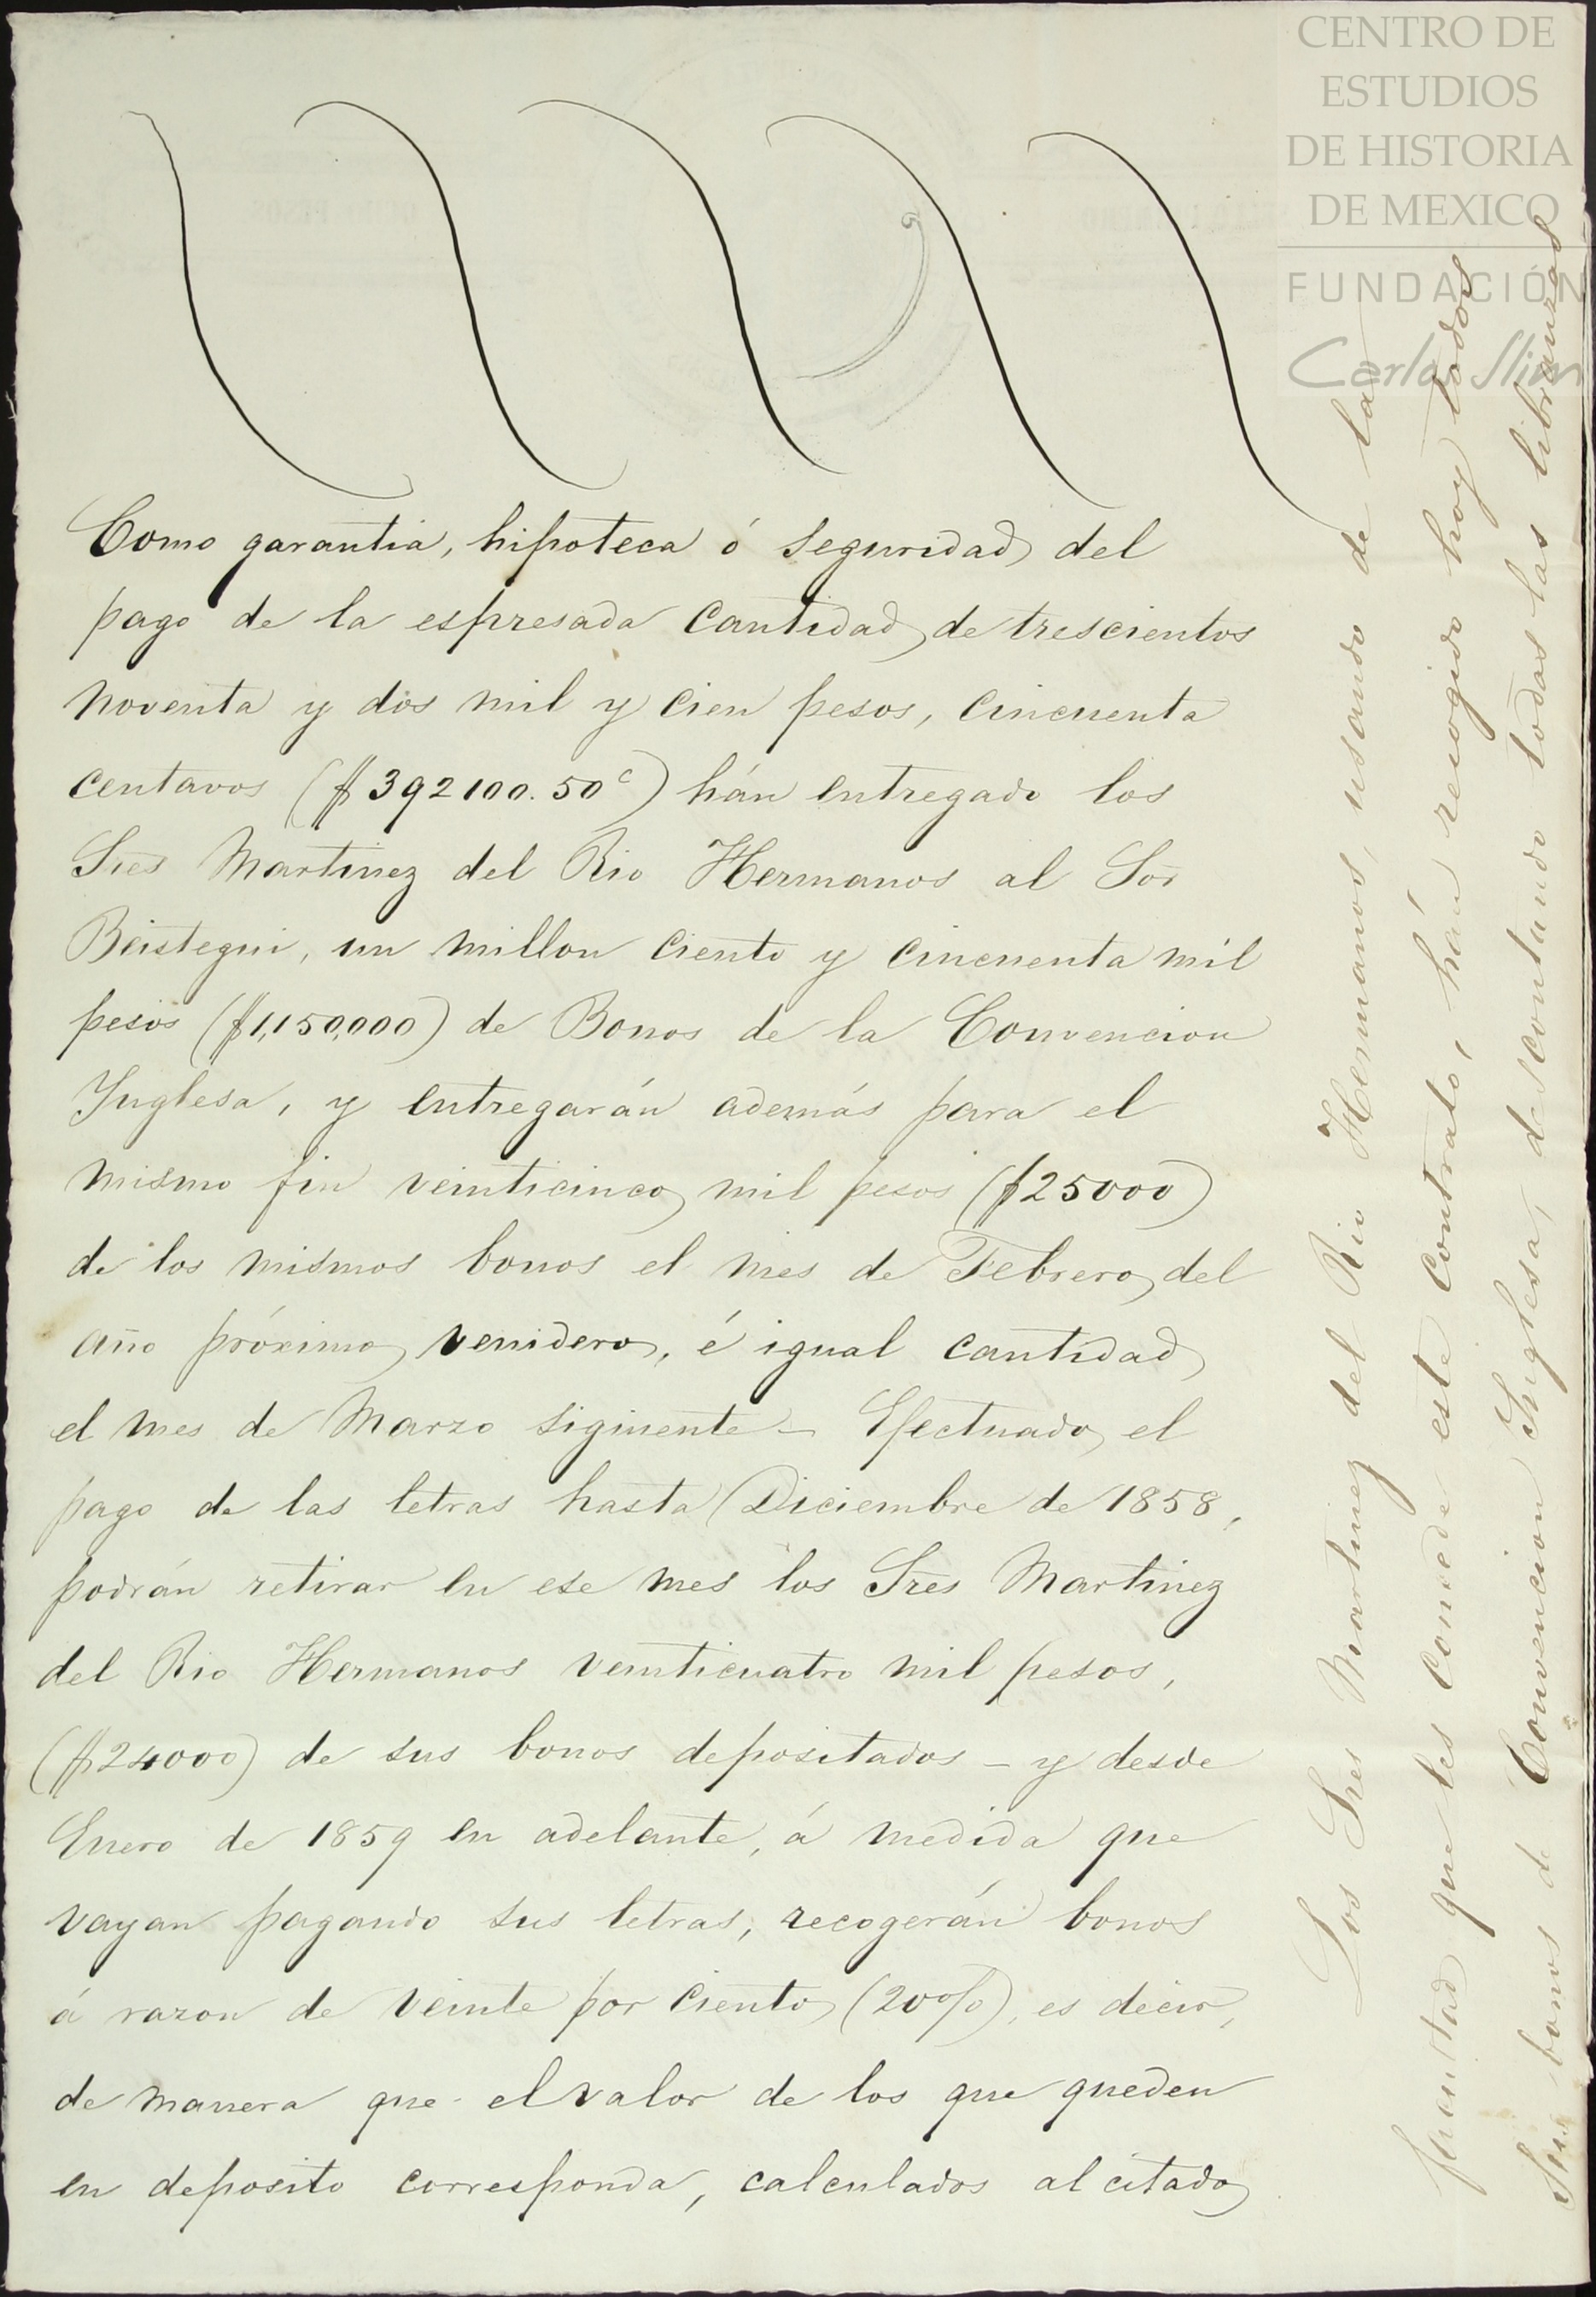 CENTRO DE
ESTUDIOS
DE HISTORIA
DE MEXICO
FUNDACIÓN
Carlos Slim
Como garantia, hipoteca ó seguridad del
pago de la espresada Cantidad de trescientos
noventa y dos mil y cien pesos, cincuenta
centavos ($392100.50c) hán entregado los
Sres Martinez del Rio Hermanos al Sor
Beistegui, un millon ciento y cincuenta mil
pesos ($1,150,000) de Bonos de la Convencion
Inglesa, y entregarán además para el
mismo fin veinticinco mil pesos ($25000)
de los mismos bonos el mes de Febrero del
año próximo venidero, é igual cantidad
el mes de Marzo siguiente - Efectuado el
pago de las letras hasta Diciembre de 1858,
podrán retirar en ese mes los Sres Martinez
del Rio Hermanos veinticuatro mil pesos,
($24000) de sus bonos depositados - y desde
Enero de 1859 en adelante, á medida que
vayan pagando sus letras, recogerán bonos
á razon de veinte por ciento (20%), es decir,
de manera que el valor de los que queden
en deposito corresponda, calculados al citado
Los Sres Martinez del Rio Hermanos, usando de la
facultad que les concede este contrato, hán recogido hoy todos
sus bonos de Convencion Inglesa, descontando todas las libranzas